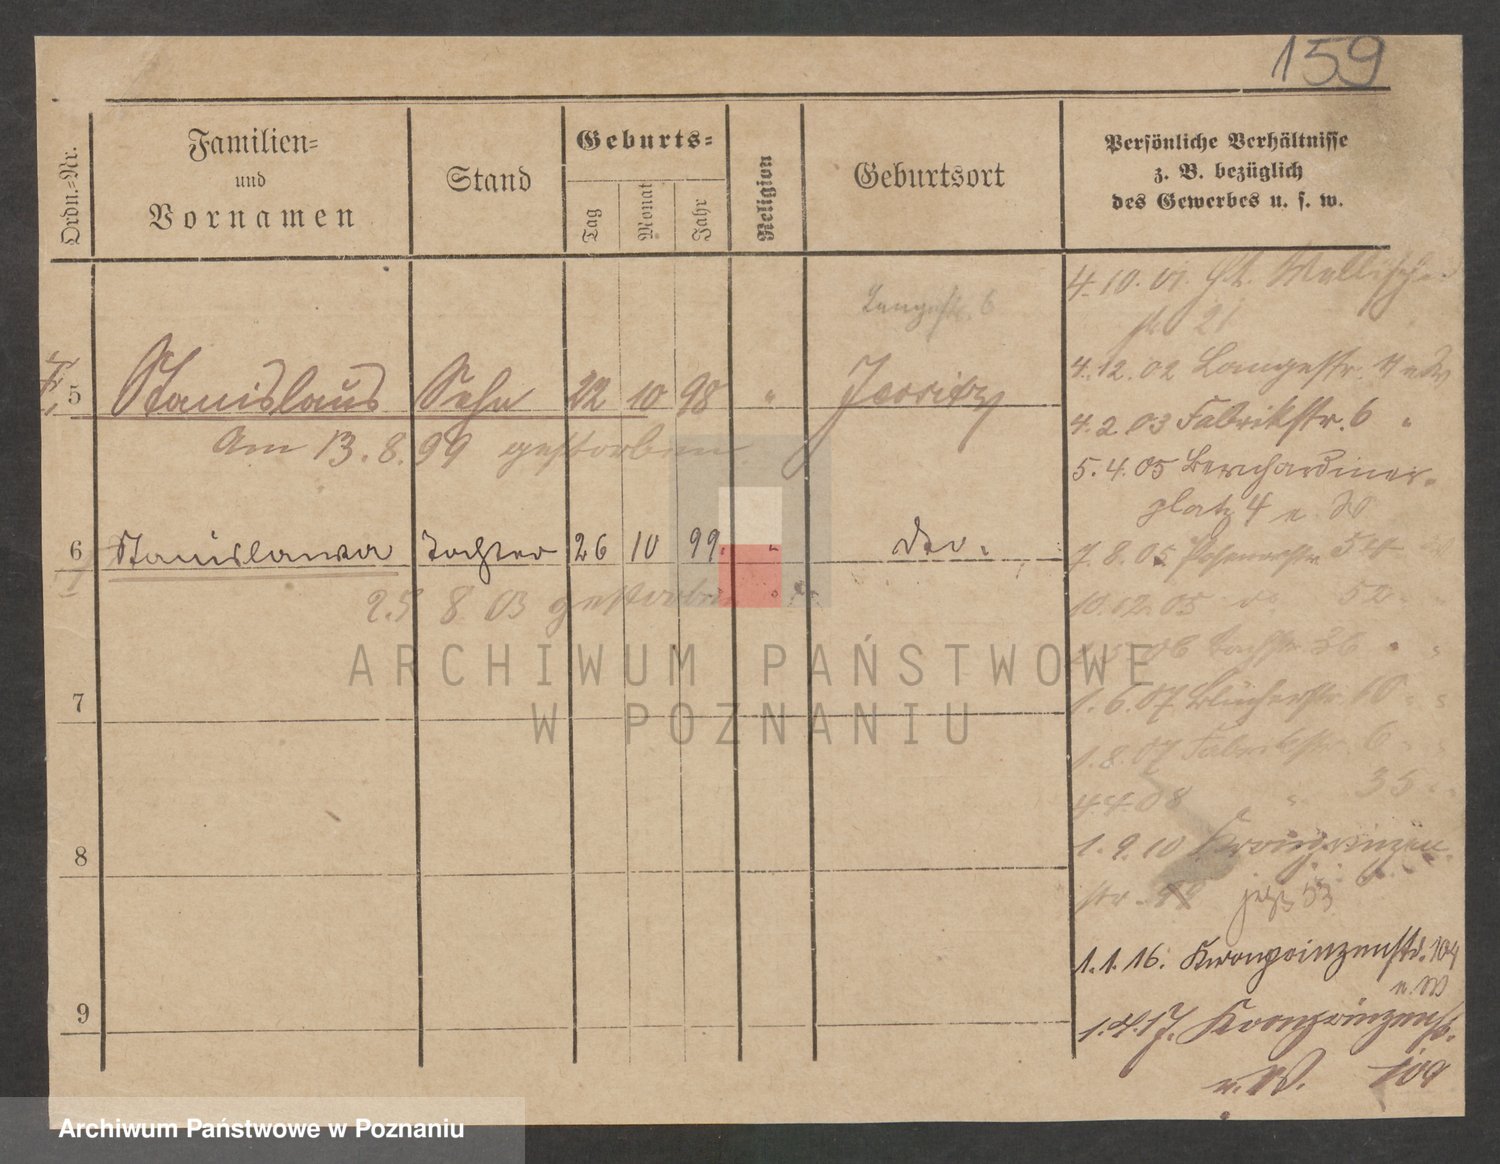 159
Ordn.-Nr.
Familien-
und
Vornamen
Stand
Geburts-
Tag
Monat
Jahr
Religion
Geburtsort
Persönliche Verhältnisse
z. B. bezüglich
des Gewerbes u. s. w.
4.10.01.
21
Langestr. 6
4.12.02 Langestr.
5 Stanislaus Sohn 22 10 98 "
4.2.03 Fabrikstr. 6 "
Am 13.8.99 gestorben
5.4.05 Bernhardiner-
platz 4
6 Stanislawa Tochter 26 10 99. " dto.
7.8.05 Posenerstr.
25 8 03 gestorben
10.12.05 do 52 "
ARCHIWUM PAŃSTWOWE
W POZNANIU
7
1.6.07 Blücherstr. 10 " "
1.8.07 Fabrikstr. 6 " "
4.4.08 " 35 " "
8
1.9.10 Kronprinzen-
str. jetzt 53
1.1.16. Kronprinzenstr. 104
u. W
9
1.4.17. Kronprinzenstr.
u. W. 109
Archiwum Państwowe w Poznaniu